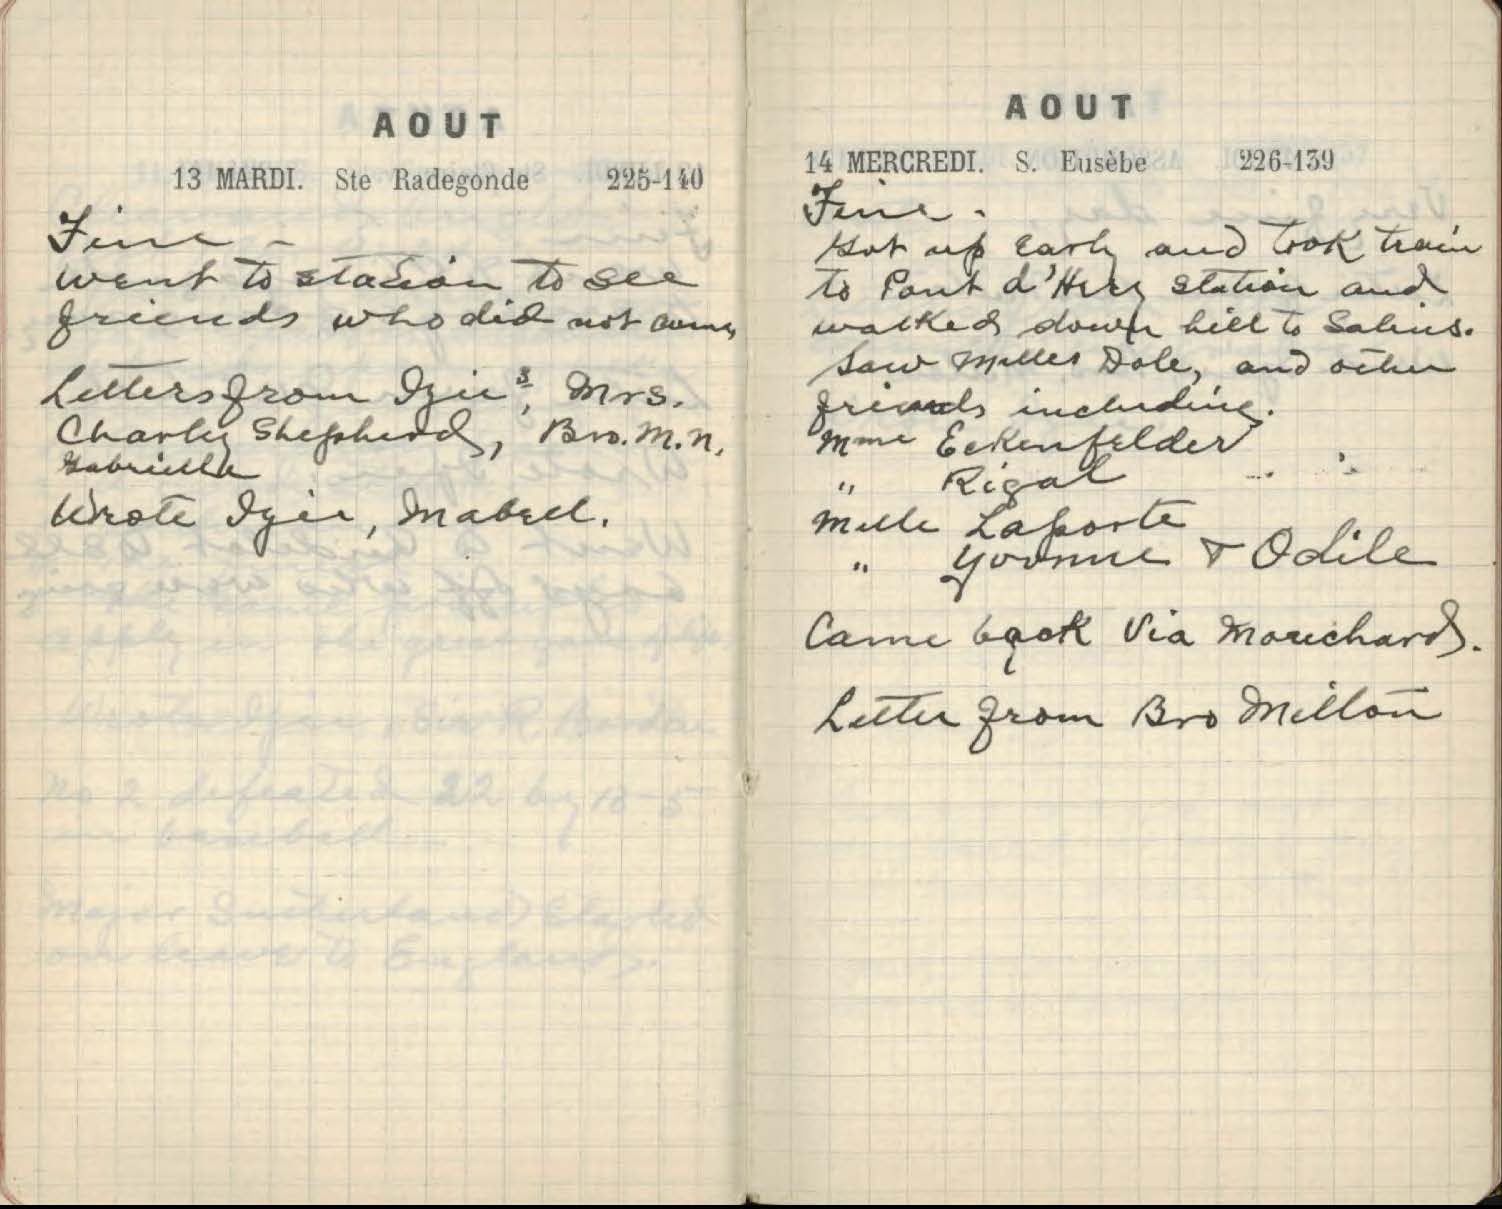 AOUT
13 MARDI. Ste Radegonde 225-140
Fine -
went to station to see
friends who did not come,
Letters from Izie 3, Mrs.
Charley Shepherd, Bro. M.N.
Gabrielle
Wrote Izie, Mabel.
AOUT
14 MERCREDI. S. Eusèbe 226-139
Fine -
Got up early and took train
to Pont d'Hery station and
walked down hill to Salins.
Saw Melles Dole, and other
friends including.
Mme Eckenfelder
" Rigal
Melle Laporte
" Yvonne & Odile
Came back via Mouchard.
Letter from Bro Milton